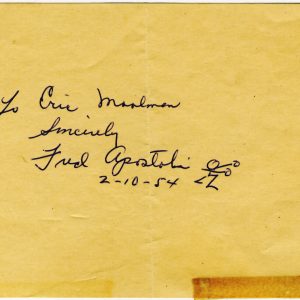 To Eric Moolman
Sincerely
Fred Apostoli
2-10-54